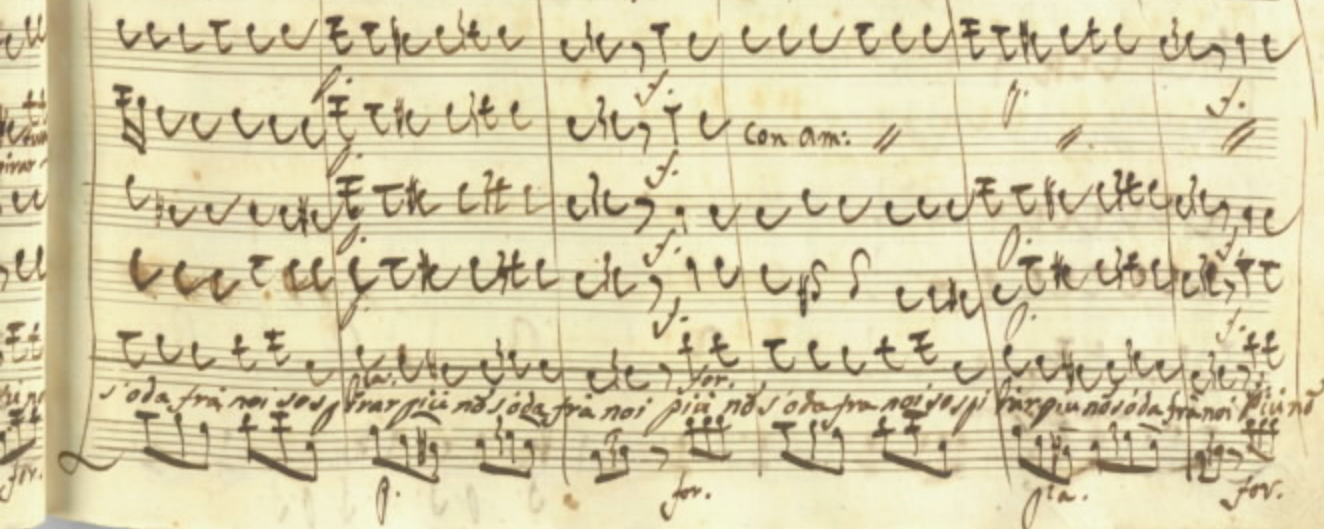 f. f. p. f.
con am:
f. f.
f. f. p. f.
pia: for.
s'oda frà noi sospirar più nõ s'oda frà noi più nõ s'oda fra noi sospirar più nõ s'óda frà noi più nõ
for. p. for. pia. for.